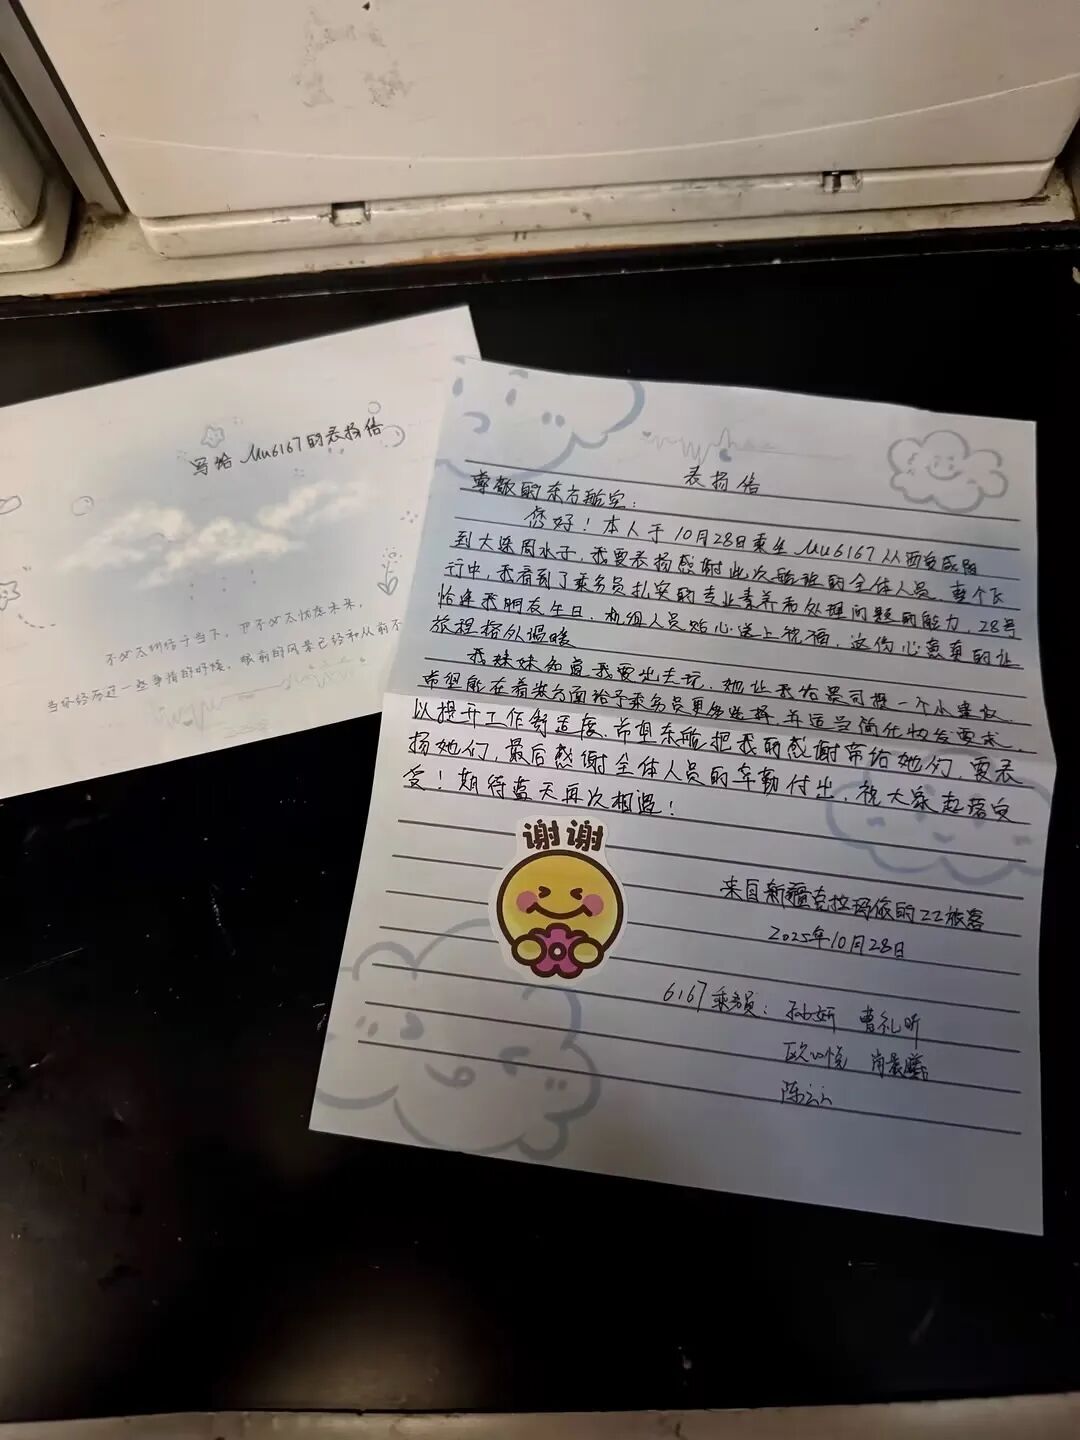 写给Mu6167的表扬信
不必太纠结于当下，也不必太忧虑未来，
当你经历过一些事情的时候，眼前的风景已经和从前不
表扬信
尊敬的东方航空：
您好！本人于10月28日乘坐Mu6167从西安咸阳
到大连周水子，我要表扬感谢此次航班的全体人员。整个飞
行中，我看到了乘务员扎实的专业素养和处理问题的能力，28号
恰逢我朋友生日，机组人员贴心送上祝福，这份心意真的让
旅程格外温暖
我妹妹知道我要出去玩，她让我给贵司提一个小建议，
希望能在着装方面给予乘务员更多选择，并适当简化妆发要求，
以提升工作舒适度、希望东航把我的感谢带给她们，要表
扬她们，最后感谢全体人员的辛勤付出，祝大家起落安
妥！期待蓝天再次相遇！
谢谢
来自新疆克拉玛依的ZZ旅客
2025年10月28日
6167乘务员：孙妍 曹礼昕
欧心悦 肖景
陈